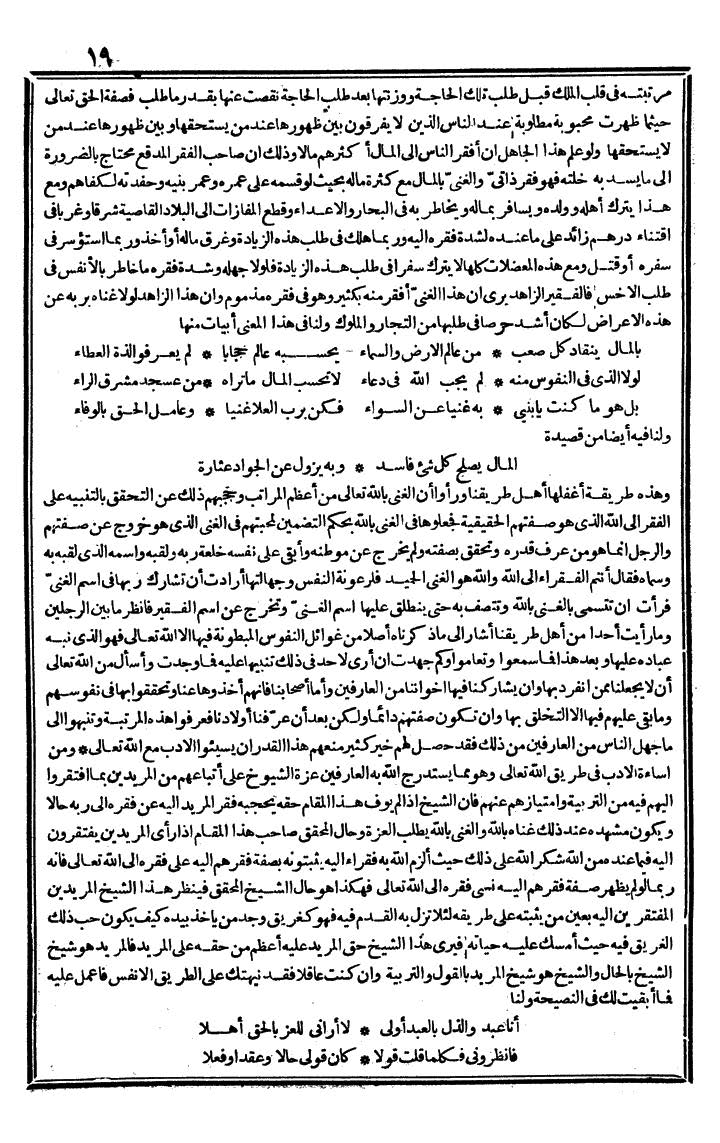 ١٩
مرتبته فى قلب الملك قبل طلب تلك الحاجة ووزنتها بعد طلب الحاجة نقصت عنها بقدر ما طلب فصفة الحق تعالى
حيثما ظهرت محبوبة مطلوبة عند الناس الذين لا يفرقون بين ظهورها عند من يستحقها وبين ظهورها عند من
لا يستحقها ولو علم هذا الجاهل ان أفقر الناس الى المال أكثرهم مالا وذلك ان صاحب الفقر المدقع محتاج بالضرورة
الى ما يسد به خلته فهو فقر ذاتىّ والغنىّ بالمال مع كثرة ماله بحيث لو قسمه على عمره وعمر بنيه وحفدته لكفاهم ومع
هذا يترك أهله وولده ويسافر بماله ويخاطر به فى البحار والاعداء وقطع المفازات الى البلاد القاصية شرقا وغربا فى
اقتناء درهم زائد على ما عنده لشدة فقره اليه وربما هلك فى طلب هذه الزيادة وغرق ماله أو أخذ وربما استؤسر فى
سفره أو قتل ومع هذه المعضلات كلها لا يترك سفرا فى طلب هذه الزيادة فلولا جهله وشدة فقره ما خاطر بالأنفس فى
طلب الاخس فالفقير الزاهد يرى ان هذا الغنىّ أفقر منه بكثير وهو فى فقره مذموم وان هذا الزاهد لولا غناه بربه عن
هذه الاعراض لكان أشد حرصا فى طلبها من التجار والملوك ولنا فى هذا المعنى أبيات منها
بالمال ينقاد كل صعب * من عالم الارض والسماء - يحسبه عالم حجابا * لم يعرفوا لذة العطاء
لولا الذى فى النفوس منه * لم يجب الله فى دعاء لا تحسب المال ما تراه * من عسجد مشرق الراء
بل هو ما كنت يابنىّ * به غنيا عن السواء فكن برب العلا غنيا * وعامل الحق بالوفاء
ولنا فيه أيضا من قصيدة
المال يصلح كل شئ فاسد * وبه يزول عن الجواد عثارة
وهذه طريقة أغفلها أهل طريقنا ورأوا أن الغنى بالله تعالى من أعظم المراتب وحجبهم ذلك عن التحقق بالتنبيه على
الفقر الى الله الذى هو صفتهم الحقيقية فجعلوها فى الغنى بالله بحكم التضمين لمحبتهم فى الغنى الذى هو خروج عن صفتهم
والرجل انما هو من عرف قدره وتحقق بصفته ولم يخرج عن موطنه وأبقى على نفسه خلعة ربه ولقبه واسمه الذى لقبه به
وسماه فقال أنتم الفقراء الى الله والله هو الغنى الحميد فلرعونة النفس وجهالتها أرادت أن تشارك ربها فى اسم الغنىّ
فرأت ان تتسمى بالغنى بالله وتتصف به حتى ينطلق عليها اسم الغنىّ وتخرج عن اسم الفقير فانظر ما بين الرجلين
وما رأيت أحدا من أهل طريقنا أشار الى ما ذكرناه أصلا من غوائل النفوس المبطونة فيها الا الله تعالى فهو الذى نبه
عباده عليها وبعد هذا فما سمعوا وتعاموا وكم جهدت ان أرى لاحد فى ذلك تنبيها عليه فما وجدت وأسأل من الله تعالى
أن لا يجعلنا ممن انفرد بها وان يشاركنا فيها اخواننا من العارفين وأما أصحابنا فانهم أخذوها عنا وتحققوا بها فى نفوسهم
وما بقى عليهم فيها الا التخلق بها وان تكون صفتهم دائما ولكن بعد أن عرّفنا أولادنا فعرفوا هذه المرتبة وتنبهوا الى
ما جهل الناس من العارفين من ذلك فقد حصل لهم خير كثير منعهم هذا القدر ان يسيئوا الادب مع الله تعالى * ومن
اساءة الادب فى طريق الله تعالى وهو مما يستدرج الله به العارفين عزة الشيوخ على أتباعهم من المريدين بما افتقروا
اليهم فيه من التربية وامتيازهم عنهم فان الشيخ اذا لم يوف هذا المقام حقه يحجبه فقر المريد اليه عن فقره الى ربه حالا
ويكون مشهده عند ذلك غناه بالله والغنى بالله يطلب العزة وحال المحقق صاحب هذا المقام اذا رأى المريدين يفتقرون
اليه فيما عنده من الله شكر الله على ذلك حيث ألزم الله به فقراء اليه يثبتونه بصفة فقرهم اليه على فقره الى الله تعالى فانه
ربما لو لم يظهر صفة فقرهم اليه نسى فقره الى الله تعالى فهكذا هو حال الشيخ المحقق فينظر هذا الشيخ المريدين
المفتقرين اليه بعين من يثبته على طريقه لئلا تزل به القدم فيه فهو كغريق وجد من يأخذ بيده كيف يكون حب ذلك
الغريق فيه حيث أمسك عليه حياته فيرى هذا الشيخ حق المريد عليه أعظم من حقه على المريد فالمريد هو شيخ
الشيخ بالحال والشيخ هو شيخ المريد بالقول والتربية وان كنت عاقلا فقد نبهتك على الطريق الانفس فاعمل عليه
فما أبقيت لك فى النصيحة ولنا
أنا عبد والذل بالعبد أولى * لا أرانى للعز بالحق أهلا
فانظرونى فكلما قلت قولا * كان قولى حالا وعقدا وفعلا